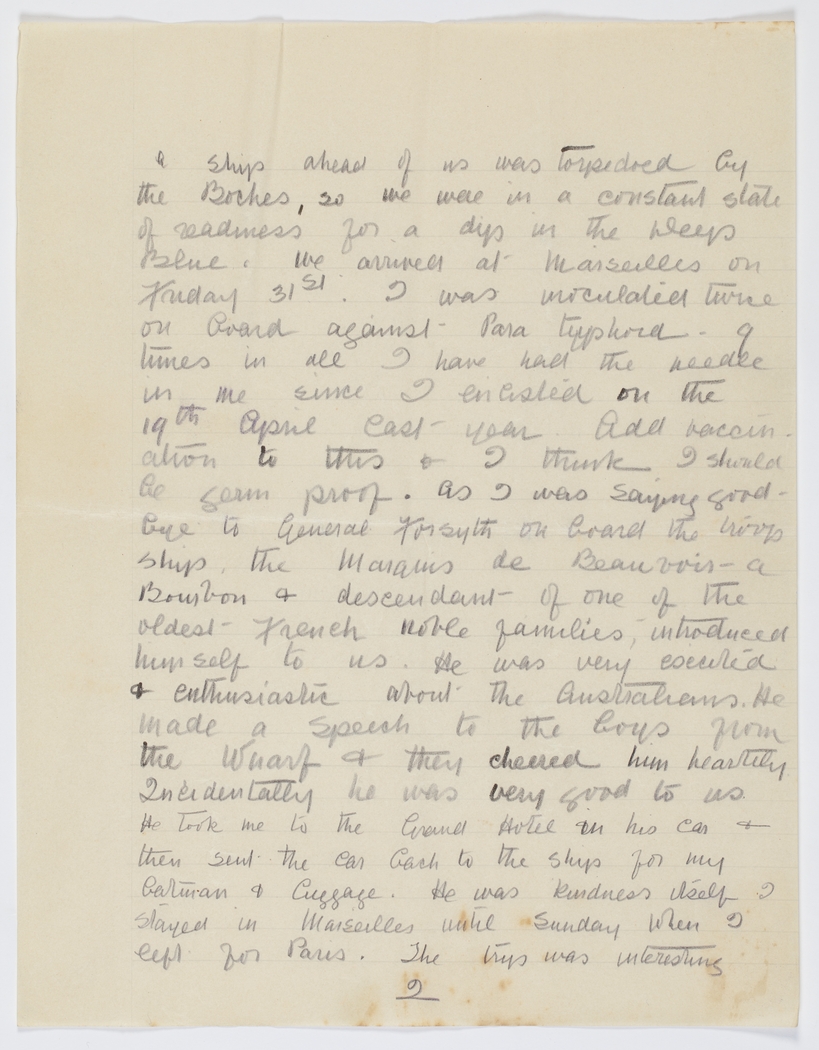 a ship ahead of us was torpedoed by
the Boches, so we were in a constant state
of readiness for a dip in the deep
Blue. We arrived at Marseilles on
Friday 31st. I was inoculated twice
on board against Para typhoid - 9
times in all I have had the needle
in me since I enlisted on the
19th April last year. Add vaccin-
ation to this & I think I should
be germ proof. As I was saying good-
bye to General Forsyth on board the troop
ship, the Marquis de Beauvoir - a
Bourbon & descendant of one of the
oldest French noble families, introduced
himself to us. He was very excited
& enthusiastic about the Australians. He
made a speech to the boys from
the Wharf & they cheered him heartily
Incidentally he was very good to us
He took me to the Grand Hotel in his car &
then sent the car back to the ship for my
batman & luggage. He was kindness itself I
stayed in Marseilles until Sunday when I
left for Paris. The trip was interesting
2